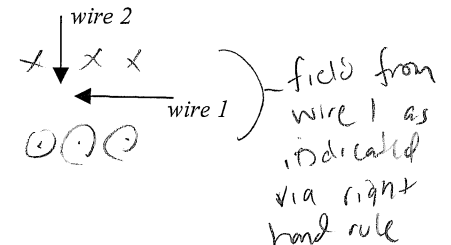 wire 2
x x x
wire 1
field from
wire 1 as
indicated
via right
hand rule